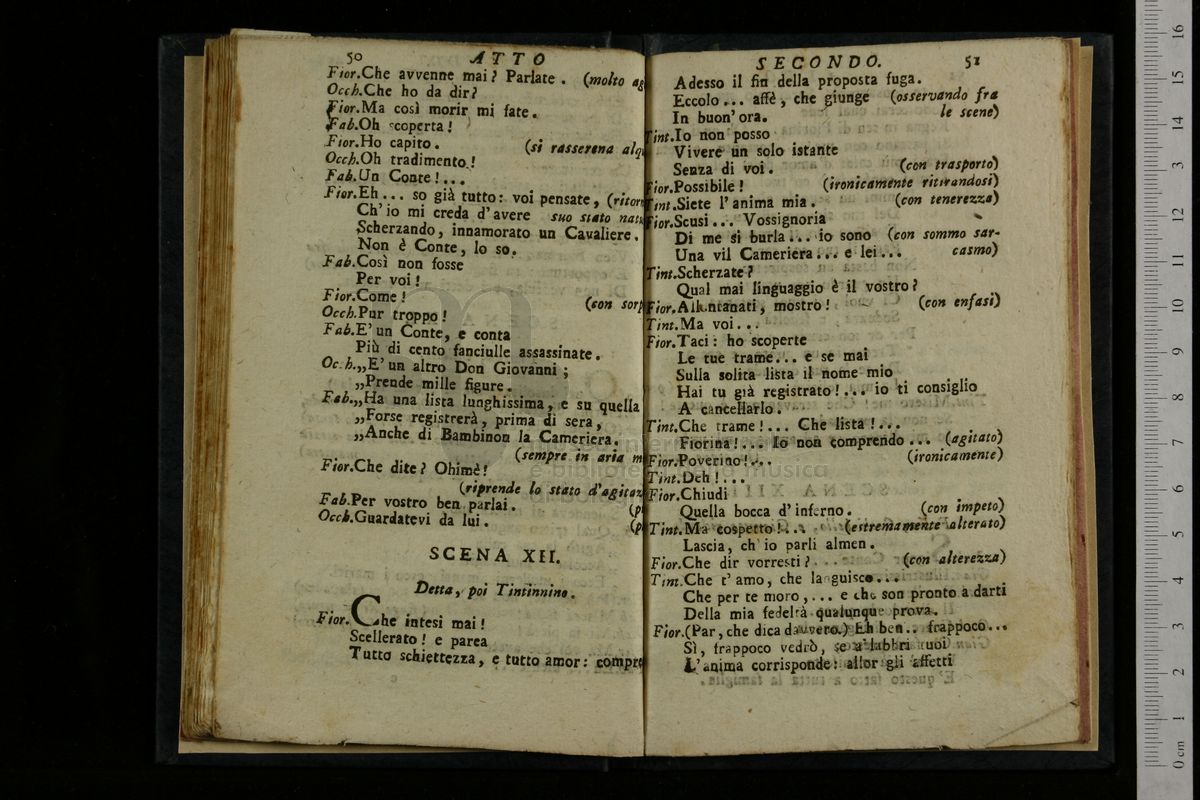 50 ATTO
Fior.Che avvenne mai? Parlate. (molto ag
Occh.Che ho da dir?
Fior.Ma così morir mi fate.
Fab.Oh scoperta!
Fior.Ho capito. (si rasserena alqu
Occh.Oh tradimento!
Fab.Un Conte!...
Fior.Eh... so già tutto: voi pensate, (ritorn
Ch'io mi creda d'avere suo stato natu
Scherzando, innamorato un Cavaliere.
Non è Conte, lo so.
Fab.Così non fosse
Per voi!
Fior.Come! (con sorp
Occh.Pur troppo!
Fab.E' un Conte, e conta
Più di cento fanciulle assassinate.
Oc.h.„E' un altro Don Giovanni;
„Prende mille figure.
Fab.„Ha una lista lunghissima, e su quella
„Forse registrerà, prima di sera,
„Anche di Bambinon la Cameriera.
(sempre in aria m
Fior.Che dite? Ohimè!
(riprende lo stato d'agitaz
Fab.Per vostro ben parlai. (p
Occh.Guardatevi da lui. (p
SCENA XII.
Detta, poi Tintinnino.
Fior.Che intesi mai!
Scellerato! e parea
Tutto schiettezza, e tutto amor: compre
SECONDO. 51
Adesso il fin della proposta fuga.
Eccolo... affè, che giunge (osservando fra
In buon'ora. le scene)
Tint.Io non posso
Vivere un solo istante
Senza di voi. (con trasporto)
Fior.Possibile! (ironicamente ritirandosi)
Tint.Siete l'anima mia. (con tenerezza)
Fior.Scusi... Vossignoria
Di me si burla... io sono (con sommo sar-
Una vil Cameriera... e lei... casmo)
Tint.Scherzate?
Qual mai linguaggio è il vostro?
Fior.Allontanati, mostro! (con enfasi)
Tint.Ma voi...
Fior.Taci: ho scoperte
Le tue trame... e se mai
Sulla solita lista il nome mio
Hai tu già registrato!... io ti consiglio
A cancellarlo.
Tint.Che trame!... Che lista!...
Fiorina!... Io non comprendo... (agitato)
Fior.Poverino!... (ironicamente)
Tint.Deh!...
Fior.Chiudi
Quella bocca d'inferno. (con impeto)
Tint.Ma cospetto!... (estremamente alterato)
Lascia, ch'io parli almen.
Fior.Che dir vorresti? (con alterezza)
Tint.Che t'amo, che languisco...
Che per te moro,... e che son pronto a darti
Della mia fedeltà qualunque prova.
Fior.(Par, che dica davvero.) Eh ben.. frappoco...
Sì, frappoco vedrò, se a' labbri tuoi
L'anima corrisponde: allor gli affetti